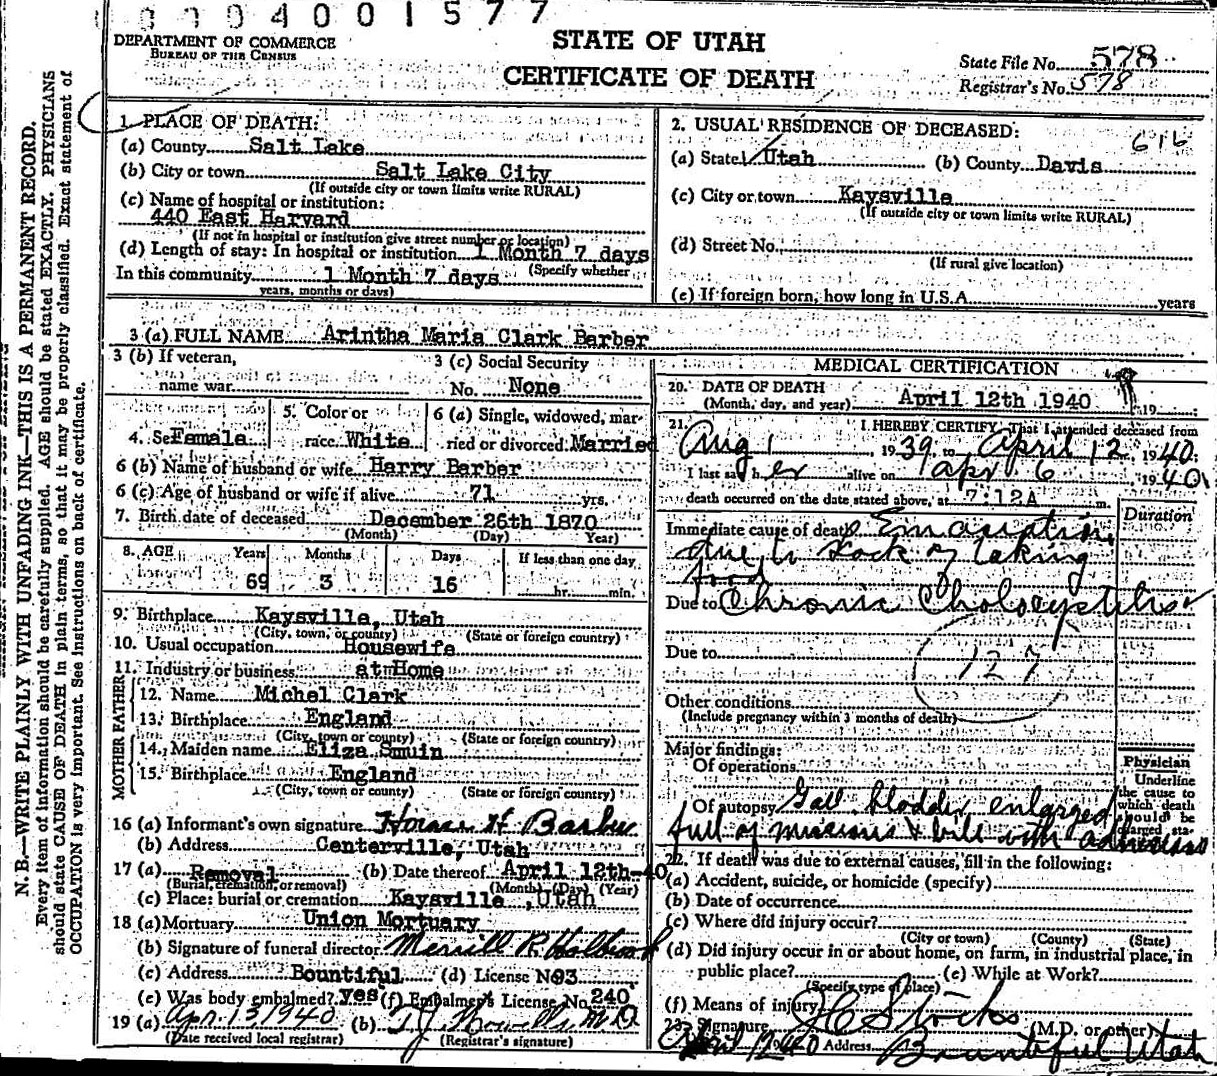 0004001577
DEPARTMENT OF COMMERCE
BUREAU OF THE CENSUS
STATE OF UTAH
CERTIFICATE OF DEATH
State File No. 578
Registrar's No. 578
N. B.—WRITE PLAINLY WITH UNFADING INK—THIS IS A PERMANENT RECORD.
Every item of information should be carefully supplied. AGE should be stated EXACTLY. PHYSICIANS
should state CAUSE OF DEATH in plain terms, so that it may be properly classified. Exact statement of
OCCUPATION is very important. See instructions on back of certificate.
1. PLACE OF DEATH:
(a) County Salt Lake
(b) City or town Salt Lake City
(If outside city or town limits write RURAL)
(c) Name of hospital or institution:
440 East Harvard
(If not in hospital or institution give street number or location)
(d) Length of stay: In hospital or institution 1 Month 7 days
(Specify whether
In this community 1 Month 7 days
years, months or days)
2. USUAL RESIDENCE OF DECEASED:
616
(a) State Utah (b) County Davis
(c) City or town Kaysville
(If outside city or town limits write RURAL)
(d) Street No.
(If rural give location)
(e) If foreign born, how long in U.S.A. years
3 (a) FULL NAME Arintha Maria Clark Barber
3 (b) If veteran,
name war
3 (c) Social Security
No. None
4. Sex Female
5. Color or
race White
6 (a) Single, widowed, mar-
ried or divorced Married
6 (b) Name of husband or wife Harry Barber
6 (c) Age of husband or wife if alive 71 yrs.
7. Birth date of deceased December 26th 1870
(Month) (Day) Year)
8. AGE Years Months Days If less than one day
69 3 16 hr. min.
9. Birthplace Kaysville, Utah
(City, town, or county) (State or foreign country)
10. Usual occupation Housewife
11. Industry or business at Home
FATHER
12. Name Michel Clark
13. Birthplace England
(City, town or county) (State or foreign country)
MOTHER
14. Maiden name Eliza Smuin
15. Birthplace England
(City, town or county) (State or foreign country)
16 (a) Informant's own signature Horace H Barber
(b) Address Centerville, Utah
17 (a) Removal (b) Date thereof April 12th-40
(Burial, cremation, or removal) (Month) (Day) (Year)
(c) Place: burial or cremation Kaysville ,Utah
18 (a) Mortuary Union Mortuary
(b) Signature of funeral director Merrill R Holbrook
(c) Address Bountiful (d) License No 93
(e) Was body embalmed? yes (f) Embalmer's License No. 240
19 (a) Apr. 13 1940 (b) M D
(Date received local registrar) (Registrar's signature)
MEDICAL CERTIFICATION
20. DATE OF DEATH
(Month, day, and year) April 12th 1940 19
21. I HEREBY CERTIFY That I attended deceased from
Aug 1, 1939 to April 12, 1940
I last saw her alive on Apr 6 1940
death occurred on the date stated above, at 7:12A m.
Duration
Immediate cause of death
due to Lack of taking
food
Due to Chronic Cholocystitis
Due to 127
Other conditions
(Include pregnancy within 3 months of death)
Major findings:
Of operations
Physician
Underline
the cause to
which death
should be
charged sta-
Of autopsy Gall bladder enlarged
full of mucous & bile with adhesions
22. If death was due to external causes, fill in the following:
(a) Accident, suicide, or homicide (specify)
(b) Date of occurrence
(c) Where did injury occur?
(City or town) (County) (State)
(d) Did injury occur in or about home, on farm, in industrial place, in
public place? (e) While at Work?
(Specify type of place)
(f) Means of injury
23. Signature J C Stocks (M.D. or other)
April 12 40 Address Bountiful Utah